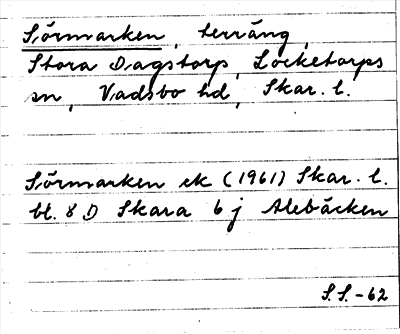 Sörmarken, terräng,
Stora Dagstorp, Locketorps
sn, Vadsbo hd, Skar. l.
Sörmarken ek (1961) Skar. l.
bl. 8 D Skara 6 j Alebäcken
S.S.-62